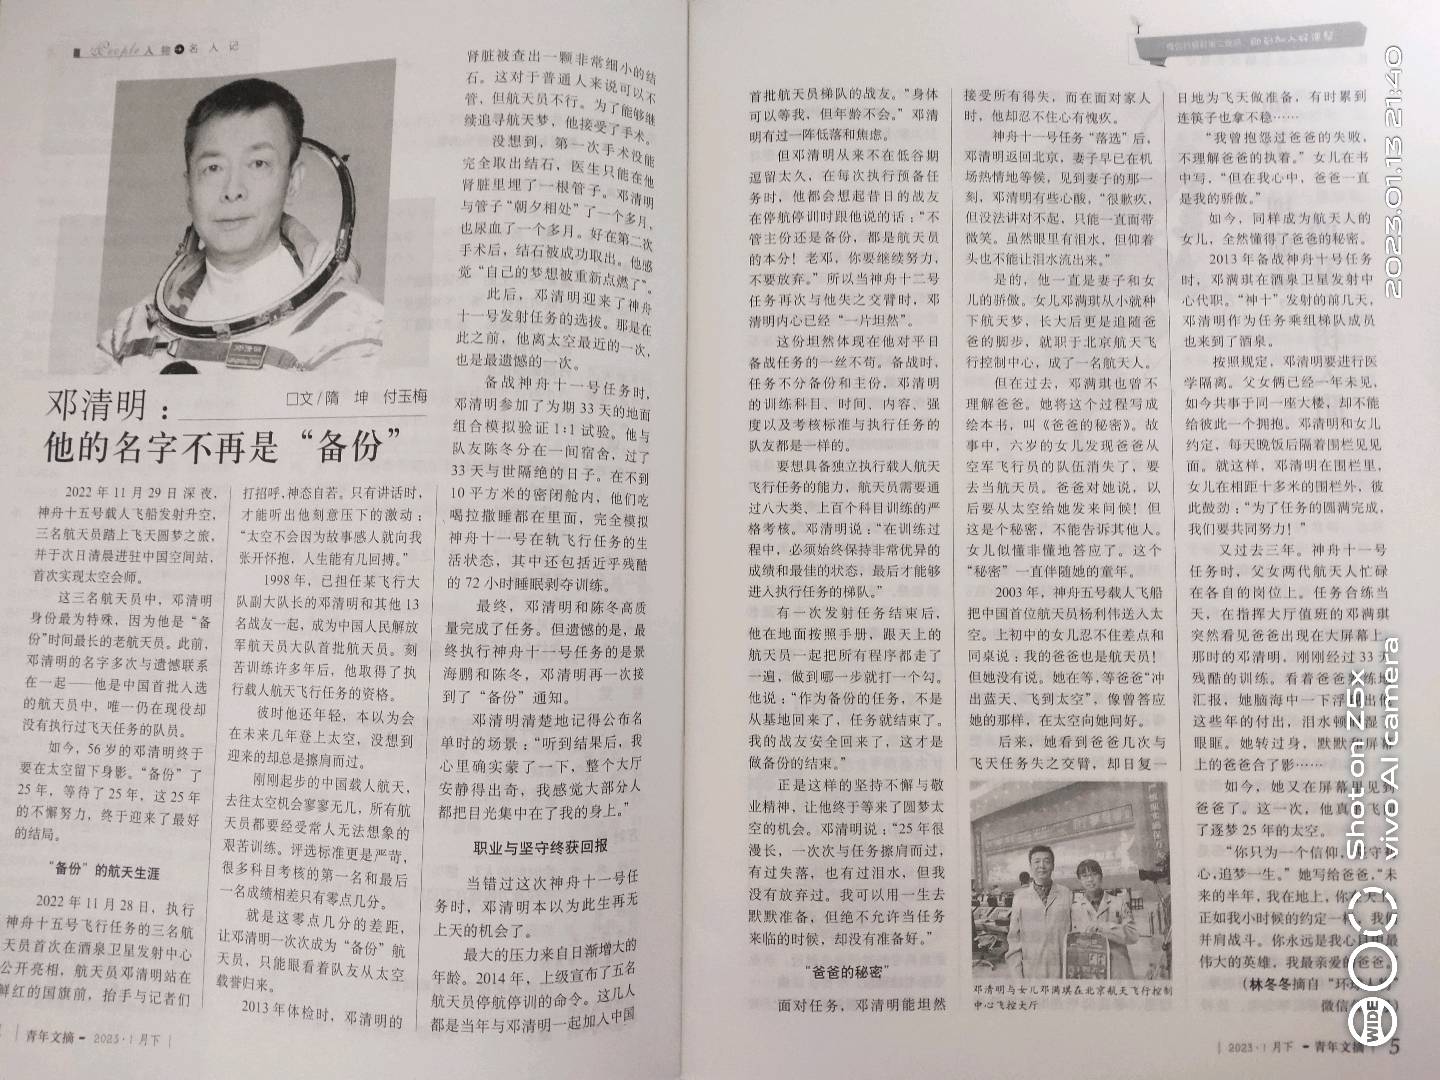 People人物 名人记
邓清明：
□文/隋 坤 付玉梅
他的名字不再是“备份”
2022年11月29日深夜，
神舟十五号载人飞船发射升空，
三名航天员踏上飞天圆梦之旅，
并于次日清晨进驻中国空间站，
首次实现太空会师。
这三名航天员中，邓清明
身份最为特殊，因为他是“备
份”时间最长的老航天员。此前，
邓清明的名字多次与遗憾联系
在一起——他是中国首批入选
的航天员中，唯一仍在现役却
没有执行过飞天任务的队员。
如今，56岁的邓清明终于
要在太空留下身影。“备份”了
25年，等待了25年，这25年
的不懈努力，终于迎来了最好
的结局。
“备份”的航天生涯
2022年11月28日，执行
神舟十五号飞行任务的三名航
天员首次在酒泉卫星发射中心
公开亮相，航天员邓清明站在
鲜红的国旗前，抬手与记者们
打招呼，神态自若。只有讲话时，
才能听出他刻意压下的激动：
“太空不会因为故事感人就向我
张开怀抱，人生能有几回搏。”
1998年，已担任某飞行大
队副大队长的邓清明和其他13
名战友一起，成为中国人民解放
军航天员大队首批航天员。刻
苦训练许多年后，他取得了执
行载人航天飞行任务的资格。
彼时他还年轻，本以为会
在未来几年登上太空，没想到
迎来的却总是擦肩而过。
刚刚起步的中国载人航天，
去往太空机会寥寥无几，所有航
天员都要经受常人无法想象的
艰苦训练。评选标准更是严苛，
很多科目考核的第一名和最后
一名成绩相差只有零点几分。
就是这零点几分的差距，
让邓清明一次次成为“备份”航
天员，只能眼看着队友从太空
载誉归来。
2013年体检时，邓清明的
肾脏被查出一颗非常细小的结
石。这对于普通人来说可以不
管，但航天员不行。为了能够继
续追寻航天梦，他接受了手术。
没想到，第一次手术没能
完全取出结石，医生只能在他
肾脏里埋了一根管子。邓清明
与管子“朝夕相处”了一个多月，
也尿血了一个多月。好在第二次
手术后，结石被成功取出。他感
觉“自己的梦想被重新点燃了”。
此后，邓清明迎来了神舟
十一号发射任务的选拔。那是在
此之前，他离太空最近的一次，
也是最遗憾的一次。
备战神舟十一号任务时，
邓清明参加了为期33天的地面
组合模拟验证1:1试验。他与
队友陈冬分在一间宿舍，过了
33天与世隔绝的日子。在不到
10平方米的密闭舱内，他们吃
喝拉撒睡都在里面，完全模拟
神舟十一号在轨飞行任务的生
活状态，其中还包括近乎残酷
的72小时睡眠剥夺训练。
最终，邓清明和陈冬高质
量完成了任务。但遗憾的是，最
终执行神舟十一号任务的是景
海鹏和陈冬，邓清明再一次接
到了“备份”通知。
邓清明清楚地记得公布名
单时的场景：“听到结果后，我
心里确实蒙了一下，整个大厅
安静得出奇，我感觉大部分人
都把目光集中在了我的身上。”
职业与坚守终获回报
当错过这次神舟十一号任
务时，邓清明本以为此生再无
上天的机会了。
最大的压力来自日渐增大的
年龄。2014年，上级宣布了五名
航天员停航停训的命令。这几人
都是当年与邓清明一起加入中国
青年文摘 - 2023·1月下
首批航天员梯队的战友。“身体
可以等我，但年龄不会。”邓清
明有过一阵低落和焦虑。
但邓清明从来不在低谷期
逗留太久，在每次执行预备任
务时，他都会想起昔日的战友
在停航停训时跟他说的话：“不
管主份还是备份，都是航天员
的本分！老邓，你要继续努力，
不要放弃。”所以当神舟十二号
任务再次与他失之交臂时，邓
清明内心已经“一片坦然”。
这份坦然体现在他对平日
备战任务的一丝不苟。备战时，
任务不分备份和主份，邓清明
的训练科目、时间、内容、强
度以及考核标准与执行任务的
队友都是一样的。
要想具备独立执行载人航天
飞行任务的能力，航天员需要通
过八大类、上百个科目训练的严
格考核。邓清明说：“在训练过
程中，必须始终保持非常优异的
成绩和最佳的状态，最后才能够
进入执行任务的梯队。”
有一次发射任务结束后，
他在地面按照手册，跟天上的
航天员一起把所有程序都走了
一遍，做到哪一步就打一个勾。
他说：“作为备份的任务，不是
从基地回来了，任务就结束了。
我的战友安全回来了，这才是
做备份的结束。”
正是这样的坚持不懈与敬
业精神，让他终于等来了圆梦太
空的机会。邓清明说：“25年很
漫长，一次次与任务擦肩而过，
有过失落，也有过泪水，但我
没有放弃过。我可以用一生去
默默准备，但绝不允许当任务
来临的时候，却没有准备好。”
“爸爸的秘密”
面对任务，邓清明能坦然
接受所有得失，而在面对家人
时，他却忍不住心有愧疚。
神舟十一号任务“落选”后，
邓清明返回北京，妻子早已在机
场热情地等候，见到妻子的那一
刻，邓清明有些心酸，“很歉疚，
但没法讲对不起，只能一直面带
微笑。虽然眼里有泪水，但仰着
头也不能让泪水流出来。”
是的，他一直是妻子和女
儿的骄傲。女儿邓满琪从小就种
下航天梦，长大后更是追随爸
爸的脚步，就职于北京航天飞
行控制中心，成了一名航天人。
但在过去，邓满琪也曾不
理解爸爸。她将这个过程写成
绘本书，叫《爸爸的秘密》。故
事中，六岁的女儿发现爸爸从
空军飞行员的队伍消失了，要
去当航天员。爸爸对她说，以
后要从太空给她发来问候！但
这是个秘密，不能告诉其他人。
女儿似懂非懂地答应了。这个
“秘密”一直伴随她的童年。
2003年，神舟五号载人飞船
把中国首位航天员杨利伟送入太
空。上初中的女儿忍不住差点和
同桌说：我的爸爸也是航天员！
但她没有说。她在等，等爸爸“冲
出蓝天、飞到太空”，像曾答应
她的那样，在太空向她问好。
后来，她看到爸爸几次与
飞天任务失之交臂，却日复一
邓清明与女儿邓满琪在北京航天飞行控制
中心飞控大厅
日地为飞天做准备，有时累到
连筷子也拿不稳……
“我曾抱怨过爸爸的失败，
不理解爸爸的执着。”女儿在书
中写，“但在我心中，爸爸一直
是我的骄傲。”
如今，同样成为航天人的
女儿，全然懂得了爸爸的秘密。
2013年备战神舟十号任务
时，邓满琪在酒泉卫星发射中
心代职。“神十”发射的前几天，
邓清明作为任务乘组梯队成员
也来到了酒泉。
按照规定，邓清明要进行医
学隔离。父女俩已经一年未见，
如今共事于同一座大楼，却不能
给彼此一个拥抱。邓清明和女儿
约定，每天晚饭后隔着围栏见见
面。就这样，邓清明在围栏里，
女儿在相距十多米的围栏外，彼
此鼓劲：“为了任务的圆满完成，
我们要共同努力！”
又过去三年。神舟十一号
任务时，父女两代航天人忙碌
在各自的岗位上。任务合练当
天，在指挥大厅值班的邓满琪
突然看见爸爸出现在大屏幕上。
那时的邓清明，刚刚经过33天
残酷的训练。看着爸爸
汇报，她脑海中一下浮
这些年的付出，泪水顿
眼眶。她转过身，默默和屏幕
上的爸爸合了影……
如今，她又在屏幕里见到
爸爸了。这一次，他真 飞
了逐梦25年的太空。
“你只为一个信仰，坚守
心，追梦一生。”她写给爸爸，“未
来的半年，我在地上，你在天上，
正如我小时候的约定一样，我们
并肩战斗。你永远是我心目中最
伟大的英雄，我最亲爱的爸爸。”
（林冬冬摘自“环球人物”
微信
2023·1月下 - 青年文摘 5
2023.01.13 21:40
Shot on Z5x
vivo AI camera
WIDE